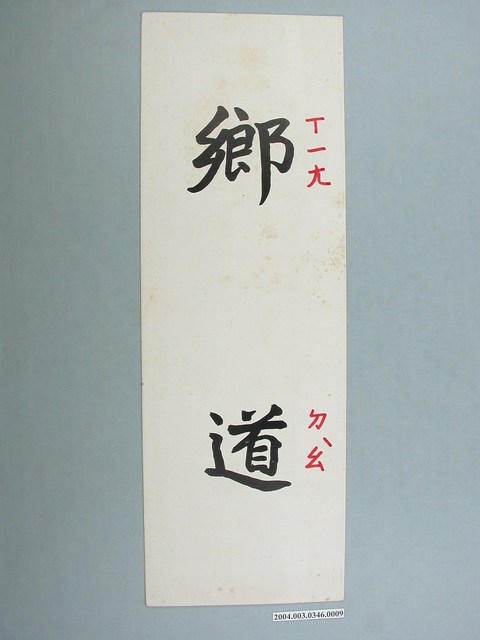 鄉道
ㄒㄧㄤ
ㄉㄠˋ
2004.003.0346.0009